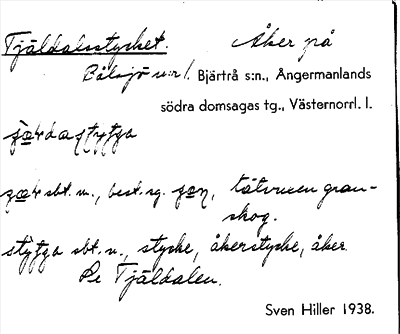 Tjäldalsstycket. Åker på
Bålsjö u:r l. Bjärtrå s:n., Ångermanlands
södra domsagas tg., Västernorrl. l.
sbt. m., best. sg. tätvuxen gran-
skog.
sbt. n., stycke, åkerstycke, åker.
Se Tjäldalen.
Sven Hiller 1938.